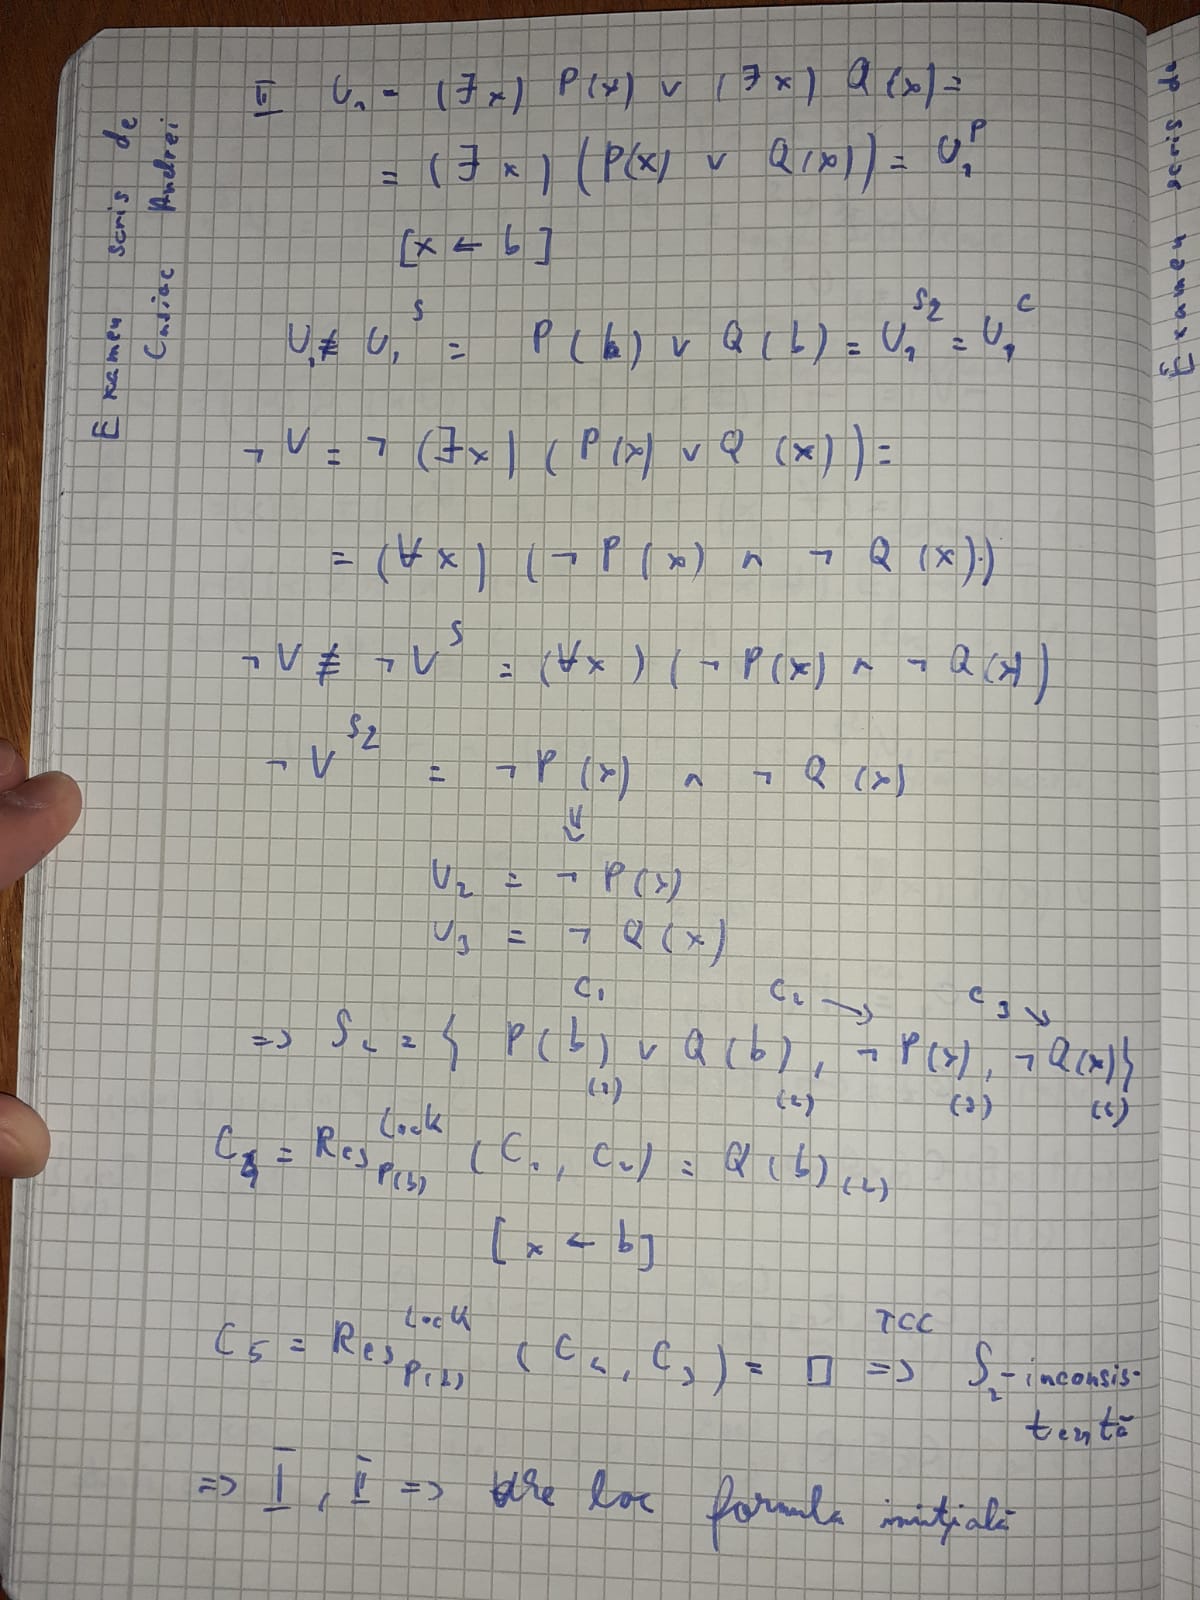 Examen scris de
Cusiac Andrei
II U₁ = (∃x) P(x) ∨ (∃x) Q(x) =
= (∃x) (P(x) ∨ Q(x)) = U₁ᴾ
[x ← b]
U₁ ≢ U₁ˢ = P(b) ∨ Q(b) = U₁ˢ² = U₁ᶜ
¬V = ¬(∃x) (P(x) ∨ Q(x)) =
= (∀x) (¬P(x) ∧ ¬Q(x))
¬V ≢ ¬Vˢ = (∀x) (¬P(x) ∧ ¬Q(x))
¬Vˢ² = ¬P(x) ∧ ¬Q(x)
⇓
U₂ = ¬P(x)
U₃ = ¬Q(x)
C₁ C₂ → C₃ ↘
=> S₂ = { P(b) ∨ Q(b), ¬P(x), ¬Q(x)}
(1) (2) (3) (4)
C₄ = Res Lock P(b) (C₁, C₂) = Q(b) (2)
[x ← b]
C₅ = Res Lock P(b) (C₄, C₃) = □ => TCC S₂-inconsis-
tentă
=> I, II => are loc formula inițială
Examen scris de